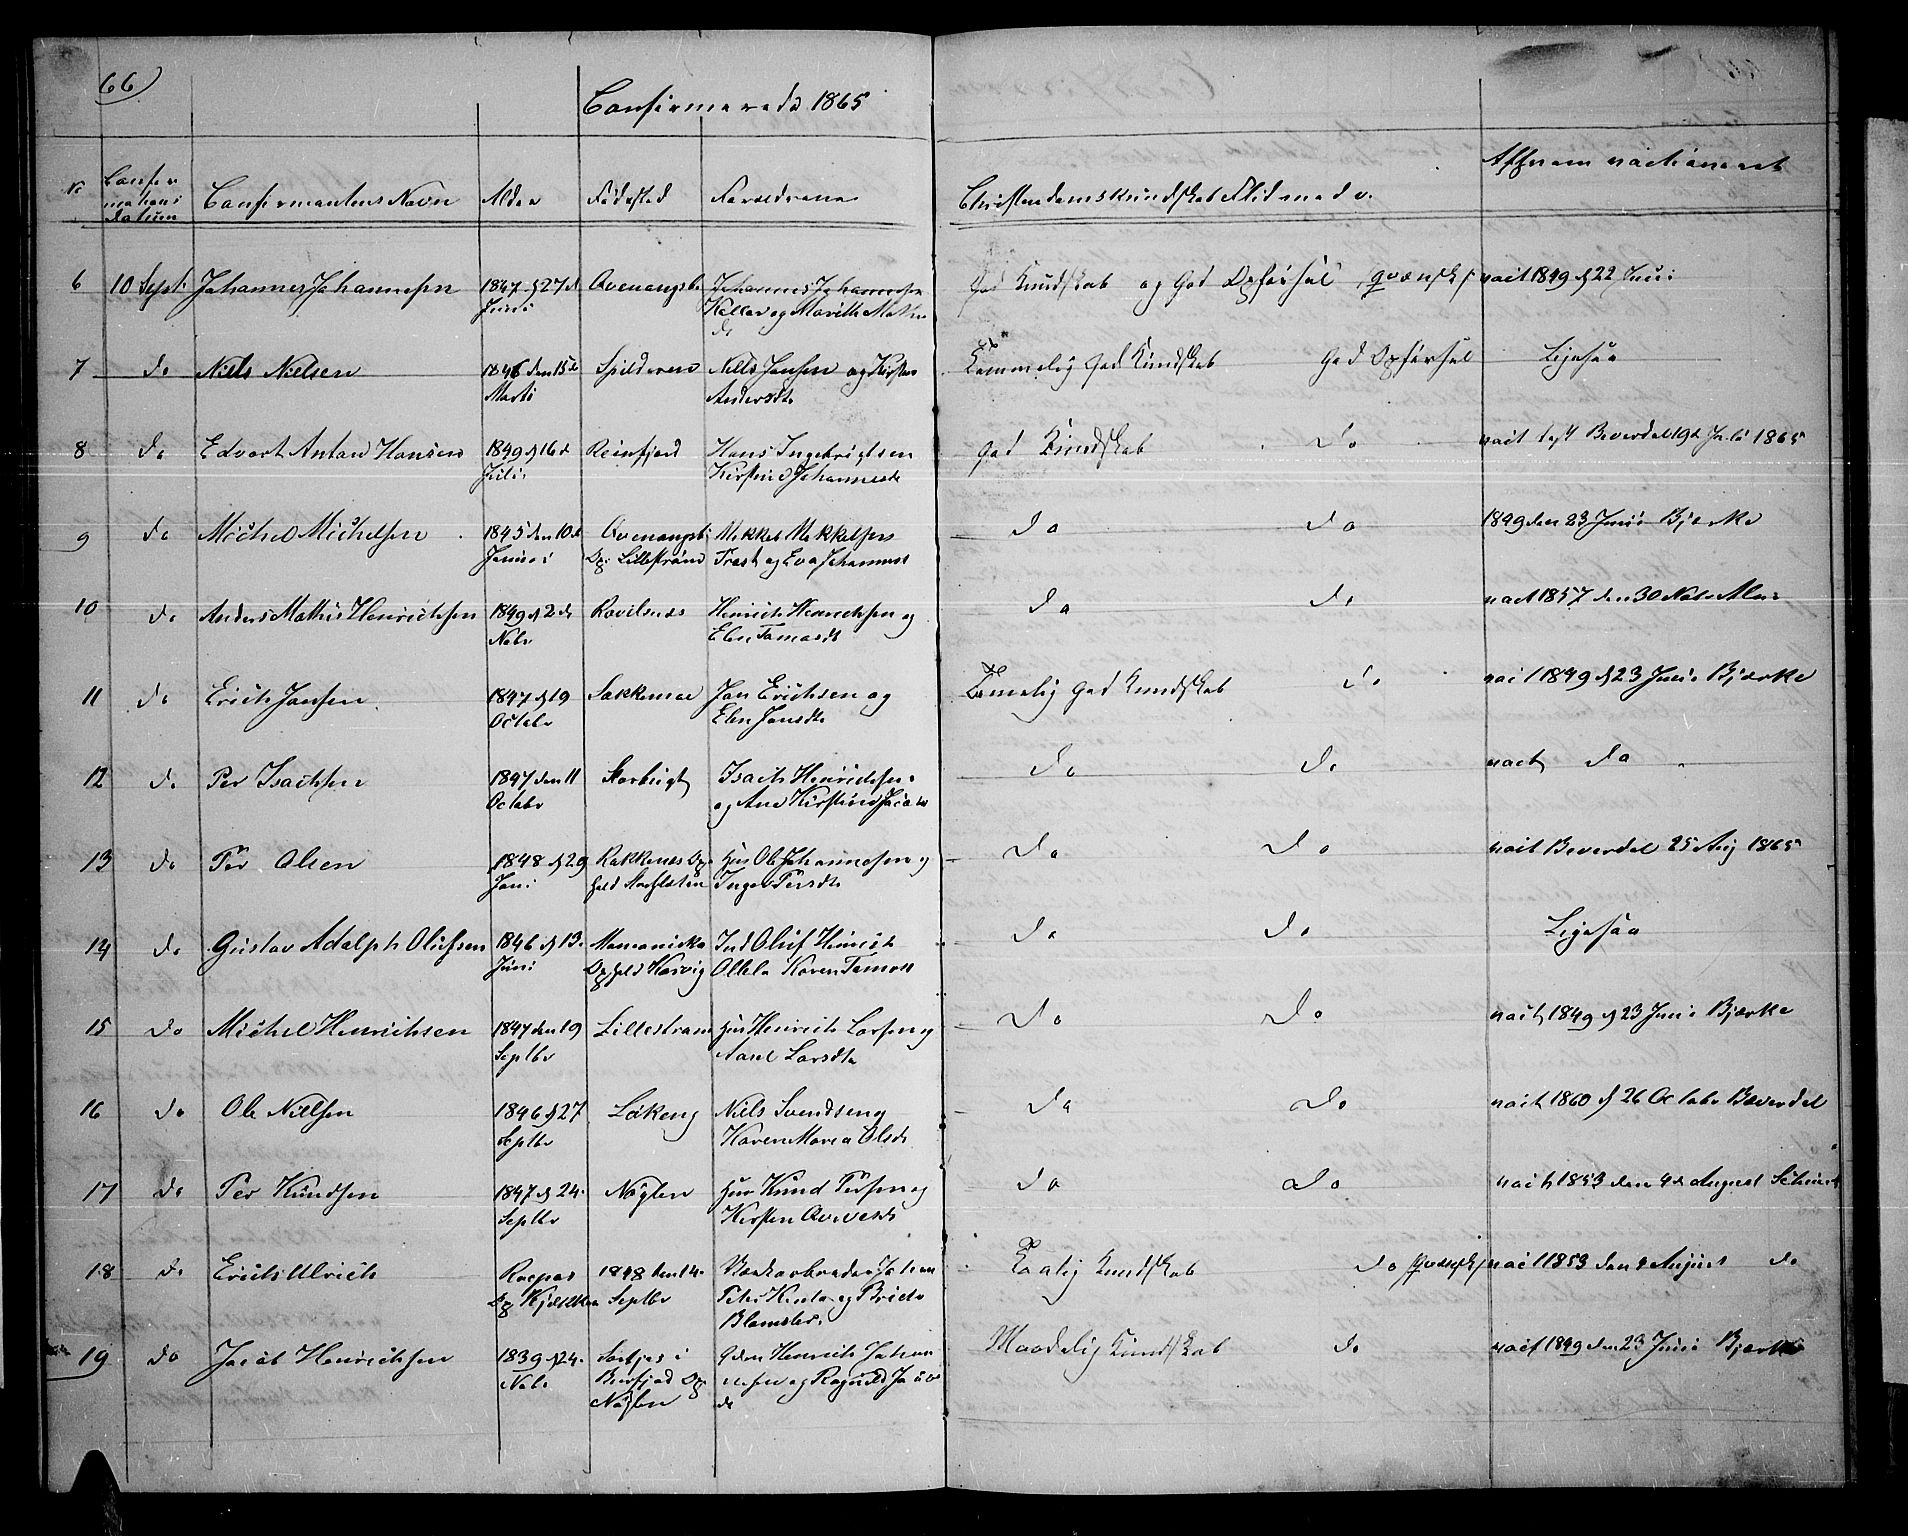 66)
Confirmerede 1865
No Confirmations datum Confirmantens Navn Alder Fødested Forældrene Christendomskundskab Flid med v. Af hvem vaccineret
6 10 Sept: Johannes Johannesen 1847 d 27d Juni Qvenangsb Johannes Johannesen Keller og Marith Mathisd. God Kundskab og God Opførsel qvænsk vact 1849 d 22 Juni
7 do Niels Nielsen 1846 den 15d Marts Spilderen Niels Jansen og Kirsten Andersdt. Temmelig God Kundskab God Opførsel Ligesaa
8 do Edvart Anton Hansen 1849 d 16d Juli Reinfjord Hans Ingebrigtsen Kirstine Johannesdt God Kundskab do vact Beverdel 19d Juli 1865
9 do Michel Michelsen 1845 den 10d Qvenangsb: Op: Lillestrøm Mekkel Mekkelsen Trast og Eva Johannesd do do 1849 den 23 Juni Bjerke
10 do Anders Mathis Henrichsen 1849 d 2de Nobr Rovilsnæs Henrich Henrichsen og Elen Tomasdt do do vact 1857 den 30 Nobr
11 do Erich Jansen 1847 d 19 Octobr Sakkemoe Jon Erichsen og Elen Jonsdt Temelig God Kundskab do vact 1849 d 23 Juni Bjerke
12 do Per Isachsen 1847 den 11 Octobr Storbugt Isach Henrichsen og Ane Kirstine Jacobs do do vact do
13 do Per Olsen 1848 d 29 Juni Rakkenes Op hold Huus Ole Johannesen og Inger Persdt do do vact Beverdel 25 Aug 1865
14 do Gustav Adolph Olufsen 1846 d 13. Juni Ophold Ind Oluf Henrich Karen Tomas do do Ligesaa
15 do Michel Henrichsen 1847 den 19 Septbr Lillestrøm Huus Henrich Larsen og Larsdt do do vact 1849 d 23 Juni Bjerke
16 do Ole Nielsen 1846 d 27 Septbr Løkeng Niels Svendsen og Karen Maria Olsdt do do vact 1860 d 26 Octobr Beverdel
17 do Per Knudsen 1847 d 24. Septbr Nøglen Huus Knud Persen og Kirsten do do vact 1853 den 4d August
18 do Erich Ulrich Op 1848 den 14. Septbr Johan Peter og Blomster. Taalig Kundskab do qvænsk vact 1853 den 4 August do
19 do Jacob Henrichsen 1839 d 24. Nobr i Burfjord Op Nøglen Henrich Johannesen og Ragnild Jacobsd Maadelig Kundskab do vact 1849 den 23 Juni Bjerke